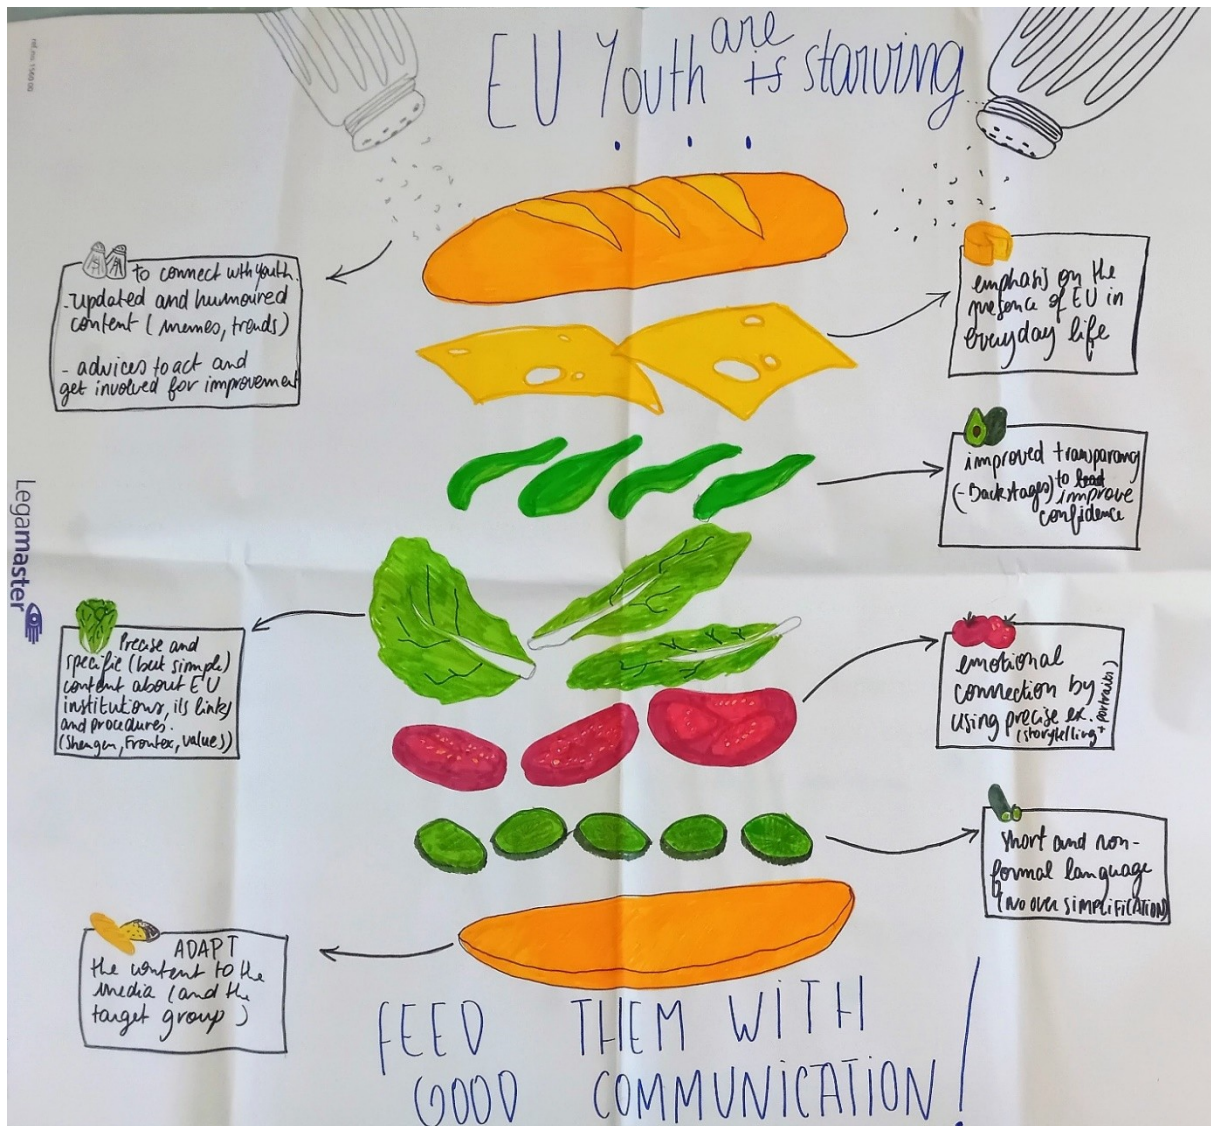 EU Youth are is starving
...
to connect with youth.
- updated and humoured
content (memes, trends)
- advices to act and
get involved for improvement
emphasis on the
presence of EU in
everyday life
improved transparancy
(-Backstages) to lead improve
confidence
Legamaster
Precise and
specific (but simple)
content about EU
institutions, its links
and procedures.
(Shengen, Frontex, values))
emotional
connection by
using precise ex.
(storytelling +
portraits)
short and non-
formal language
(no over SIMPLIFICATION)
ADAPT
the content to the
media (and the
target group)
FEED THEM WITH
GOOD COMMUNICATION!